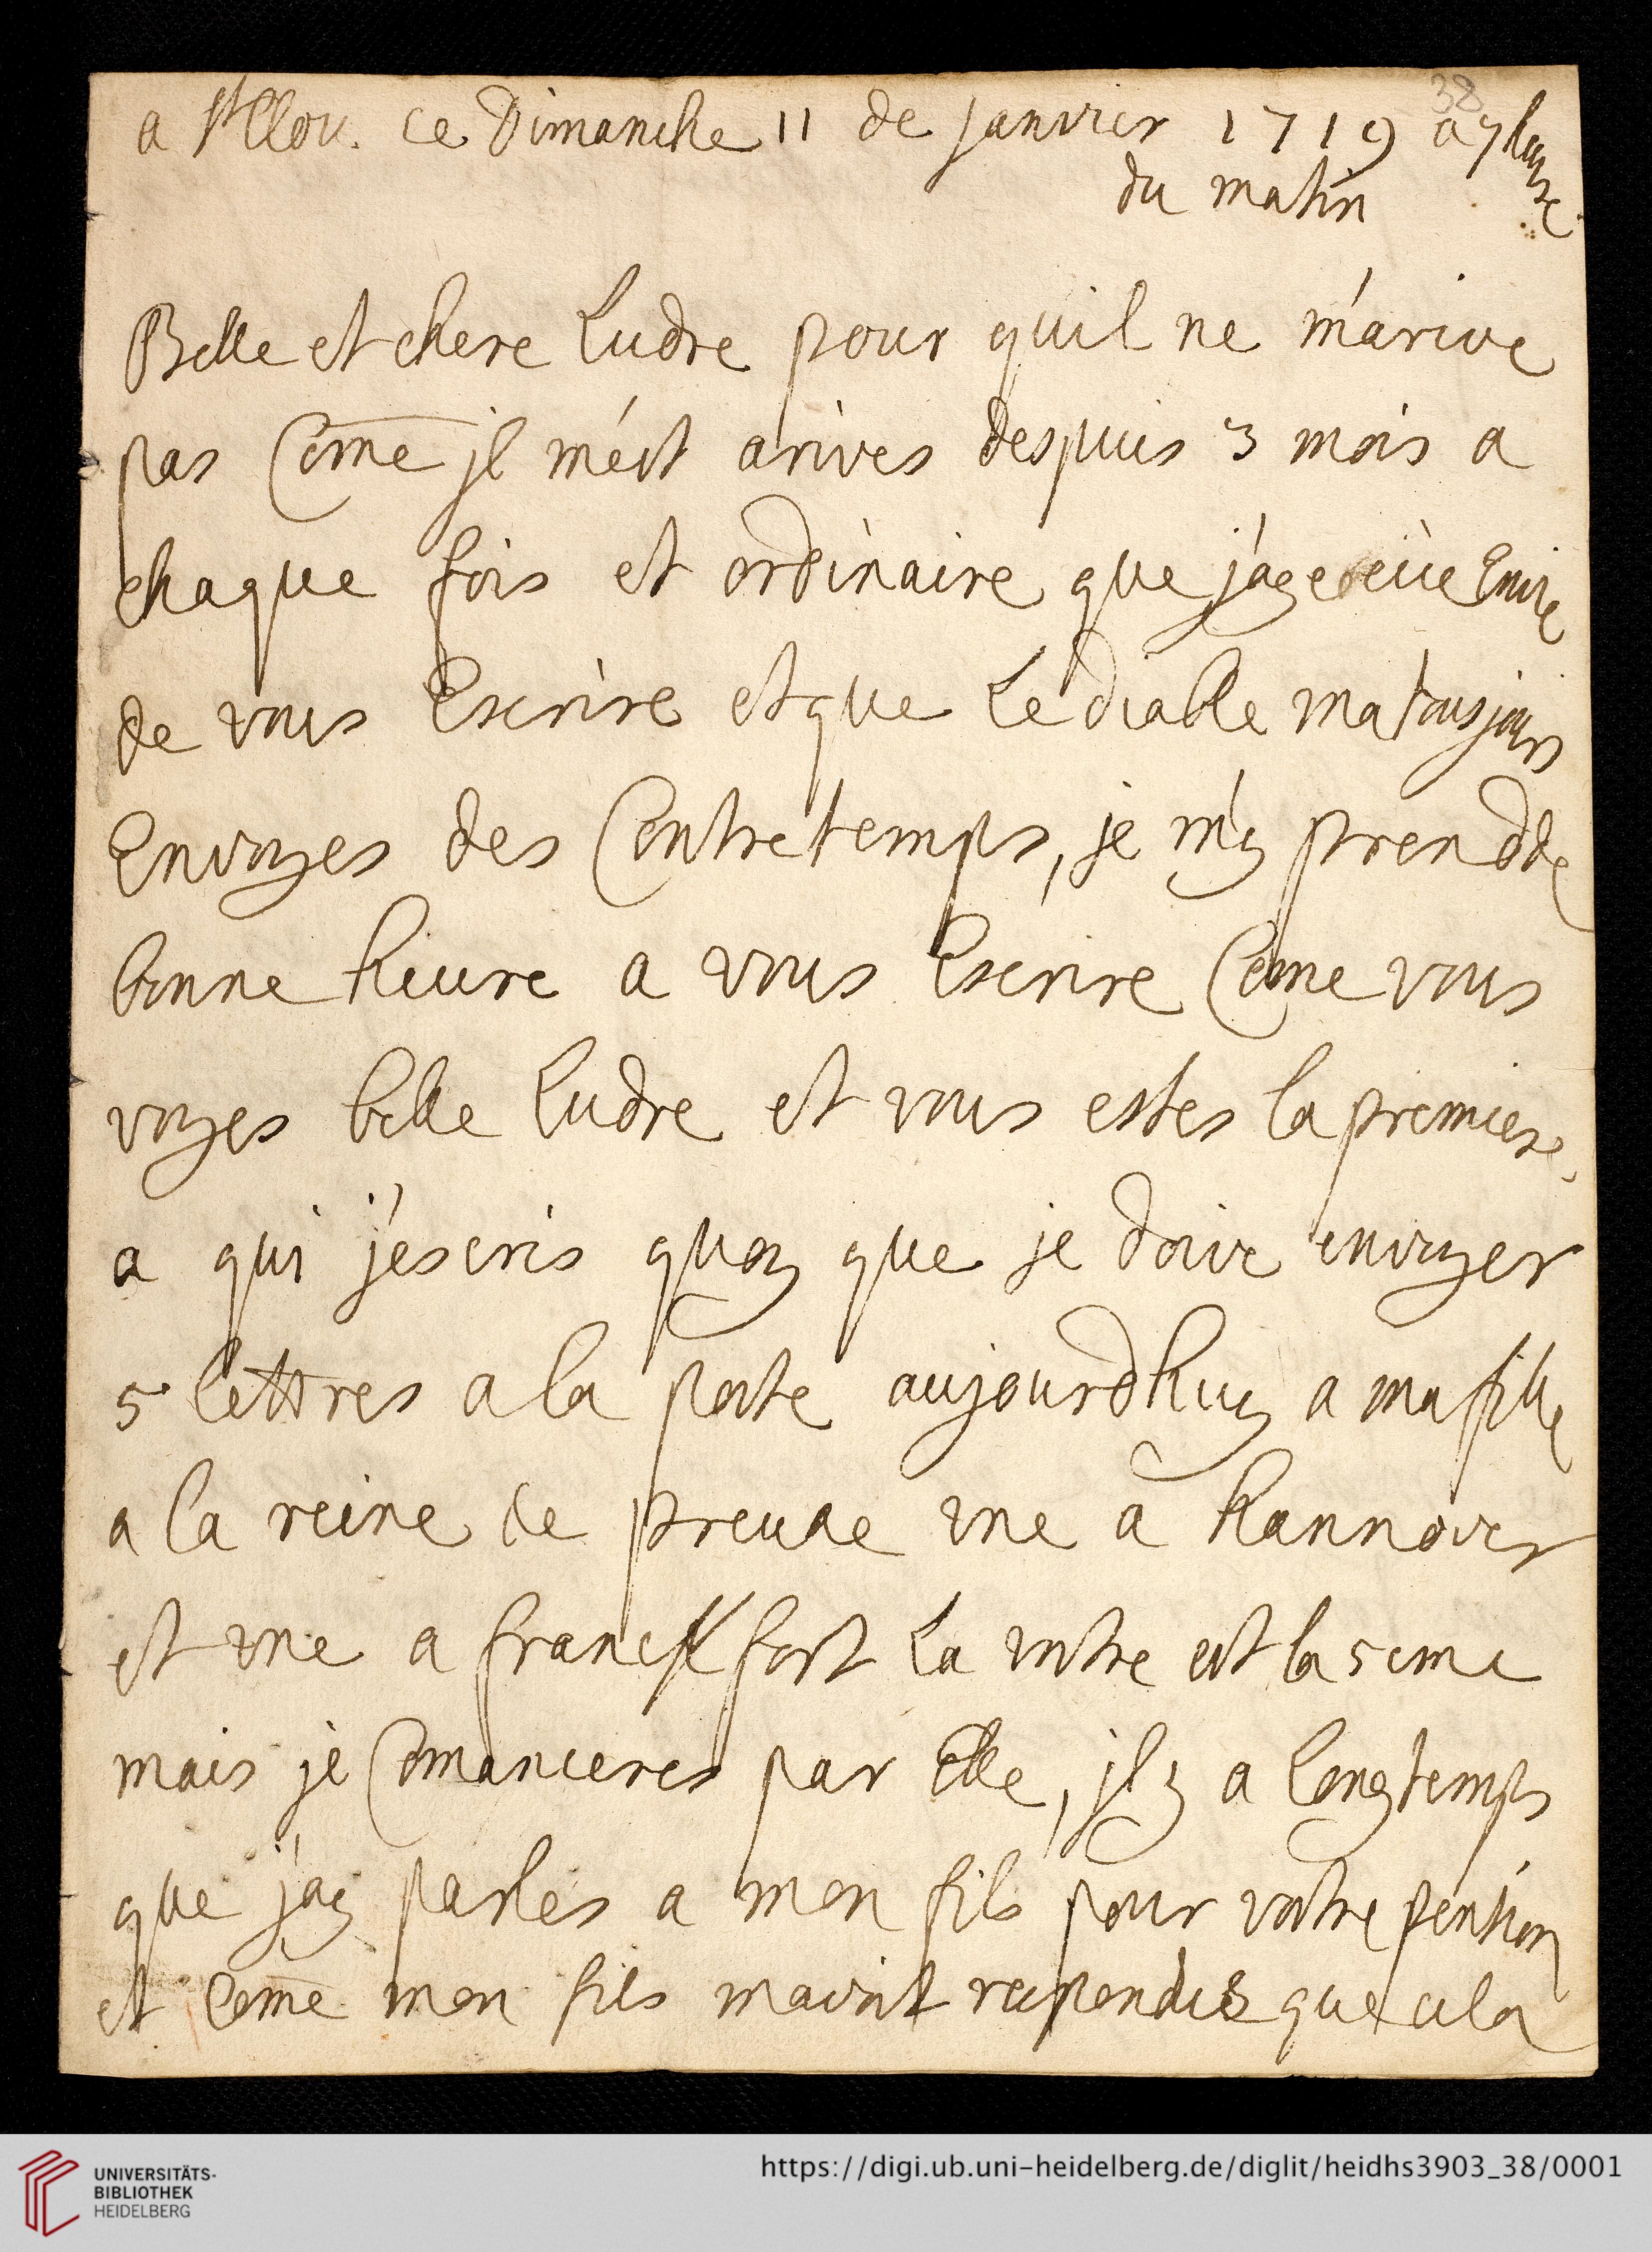 38
a St Clou. ce Dimanche 11 de janvier 1719 a 7 heure
du matin
Belle et chere Ludre pour quil ne m'arive
pas Come jl m'est arives despuis 3 mois a
chaque fois et ordinaire que j'ay eüe Envie
de vous Escrire et que Le diable ma tousjours
Envoyes des Contretemps, je m'y prend de
bonne heure a vous Escrire Come vous
voyes belle Ludre et vous estes la premiere
a qui j'escris quoy que je doive envoyer
5 lettres a la poste aujourdhuy a ma fille
a la reine de preusse une a hannover
et une a franckfort La votre est la 5 eme
mais je Comanceres par Elle, jl y a longtemps
que j'ay parles a mon fils pour votre pention
et Come mon fils mavoit respondus que cela
UNIVERSITÄTS-
BIBLIOTHEK
HEIDELBERG
https://digi.ub.uni-heidelberg.de/diglit/heidhs3903_38/0001